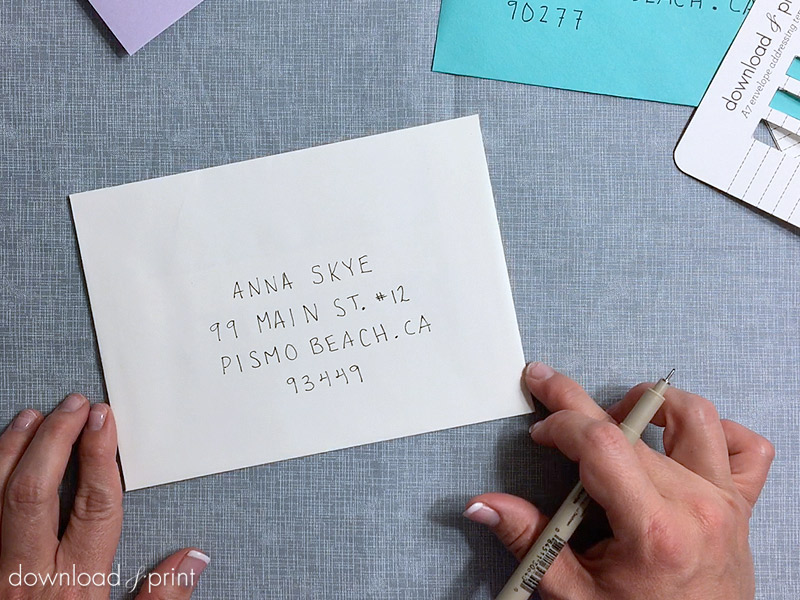 90277
BEACH. CA
download & print
A7 envelope addressing
ANNA SKYE
99 MAIN ST. #12
PISMO BEACH. CA
93449
download & print